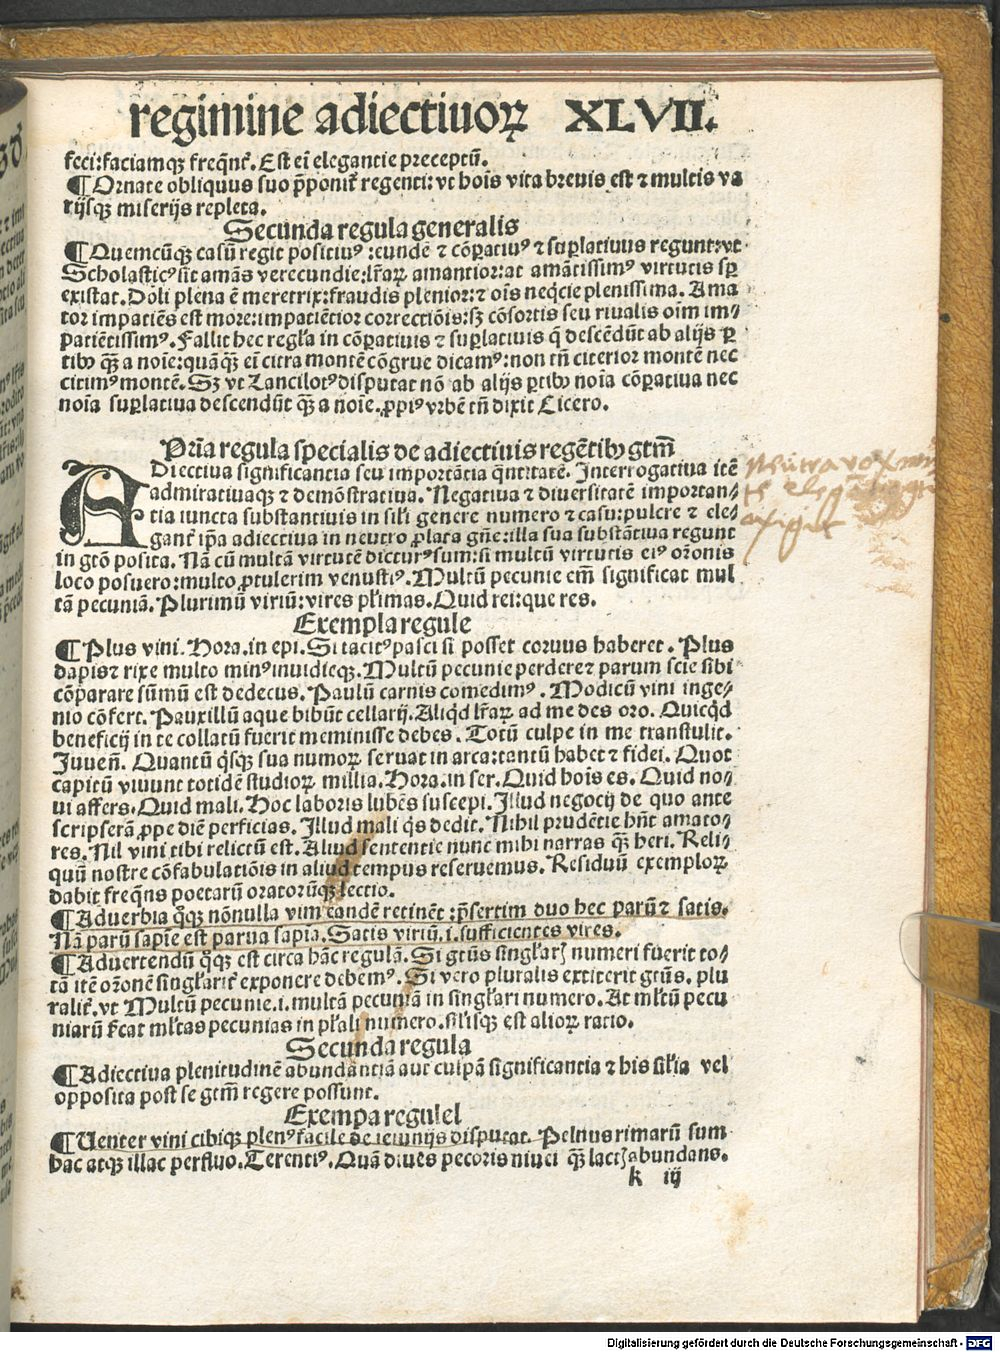 regimine adiectiuoꝝ XLVII.
feci:faciamqꝫ freq̃nt̃. Est eĩ elegantie preceptũ.
¶ Ornate obliquus suo p̃ponit̃ regenti: vt hoĩs vita breuis est ⁊ multis va
rijsqꝫ miserijs repleta.
Secunda regula generalis
¶ Quemcũqꝫ casũ regit positiuꝰ: eundẽ ⁊ cõparatiuꝰ ⁊ suꝑlatiuus regunt: vt
Scholasticꝰ sit amãs verecundie: lr̃aꝝ amantior: at amãtissimꝰ virtutis sꝑ
existat. Dõli plena ẽ meretrix: fraudis plenior: ⁊ oĩs neq̃cie plenissima. Ama
tor impatiẽs est more: impatiẽtior correctiõis: sꝫ cõsortis seu riualis oĩm im⸗
patiẽtissimꝰ. Fallit hec regl̃a in cõꝑatiuis ⁊ suꝑlatiuis q̃ descẽdũt ab alijs ꝑ
tibꝰ qꝫ̃ a noĩe: quãqꝫ̃ eĩ citra montẽ cõgrue dicamꝰ: non tñ citerior montẽ nec
citimꝰ montẽ. Sꝫ vt Lancilotꝰ disputat nõ ab alijs ꝑtibꝰ noĩa cõꝑatiua nec
noĩa suꝑlatiua descendũt qꝫ̃ a noĩe. ꝓpiꝰ vrbẽ tñ dixit Cicero.
Pr̃ia regula specialis de adiectiuis regẽtibꝰ gt̃m
ADiectiua significantia seu importãtia q̃ntitatẽ. Interrogatiua itẽ
admiratiuaqꝫ ⁊ demõstratiua. Negatiua ⁊ diuersitatẽ importan⸗
tia iuncta substantiuis in sil̃i genere numero ⁊ casu: pulcre ⁊ ele⸗
gant̃ ip̃a adiectiua in neutro ꝓlata gñe: illa sua substãtiua regunt
in gt̃õ posita. Nã cũ multã virtutẽ dicturꝰ sum: si multũ virtutis eiꝰ or̃onis
loco posuero: multo ꝓtulerim venustiꝰ. Multũ pecunie em̃ significat mul
tã pecuniã. Plurimũ viriũ: vires pl̃imas. Quid rei: que res.
Exempla regule
¶ Plus vini. Hora. in epi. Si tacitꝰ pasci si posset coruus haberet. Plus
dapis ⁊ rixe multo minꝰ inuidieqꝫ. Multũ pecunie perdere ⁊ parum scie sibi
cõparare sũmũ est dedecus. Paulũ carnis comedimꝰ. Modicũ vini inge⸗
nio cõfert. Pauxillũ aque bibũt cellarij. Aliq̃d lr̃aꝝ ad me des oro. Quicq̃d
beneficij in te collatũ fuerit meminisse debes. Totũ culpe in me transtulit.
Juueñ. Quantũ q̃sqꝫ sua numoꝝ seruat in arca: tantũ habet ⁊ fidei. Quot
capitũ viuunt totidẽ studioꝝ millia. Hora. in ser. Quid hoĩs es. Quid no⸗
ui affers. Quid mali. Hoc laboris lubẽs suscepi. Illud negocij de quo ante
scripserã ꝓpe diẽ perficias. Illud mali q̃s dedit. Nihil prudẽtie hñt amato⸗
res. Nil vini tibi relictũ est. Aliud sententie nunc mihi narras qꝫ̃ heri. Reli⸗
quũ nostre cõfabulatiõis in aliud tempus reseruemus. Residuũ exemploꝝ
dabit freq̃ns poetarũ oratorũqꝫ lectio.
¶ Aduerbia q̃qꝫ nõnulla vim eandẽ retinẽt: p̃sertim duo hec parũ ⁊ satis.
Nã parũ sapĩe est parua sapĩa. Satis viriũ .i. sufficientes vires.
¶ Aduertendũ q̃qꝫ est circa hãc regulã. Si gt̃us singl̃aꝝ numeri fuerit to⸗
tã itẽ or̃onẽ singl̃arit̃ exponere debemꝰ. Si vero pluralis extiterit gt̃us. plu
ralit̃. vt Multũ pecunie .i. multã pecuniã in singl̃ari numero. At ml̃tũ pecu
niarũ st̃cat ml̃tas pecunias in pl̃ali numero. sil̃isqꝫ est alioꝝ ratio.
Secunda regula
¶ Adiectiua plenitudinẽ abundantiã aut culpã significantia ⁊ his sil̃ia vel
opposita post se gt̃m regere possunt.
Exempa regulel
¶ Uenter vini cibiqꝫ plenꝰ facile de ieiunijs disputat. Pelnus rimarũ sum
hac atqꝫ illac perfluo. Terentiꝰ. Quã diues pecoris niuei qꝫ̃ lactꝭ abundans.
k iij
neutra vox
Digitalisierung gefördert durch die Deutsche Forschungsgemeinschaft - DFG